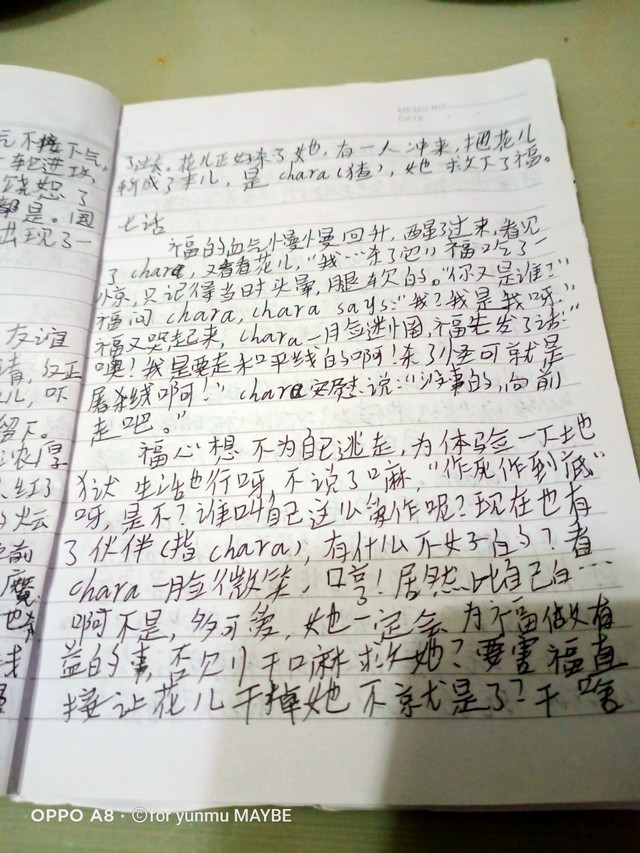 MEMO NO.
DATE
气不接下气,
饶恕了
都是。
出现了一
友谊
了过去, 花儿正好杀了她, 有一人冲来, 把花儿
斩成了末儿, 是 chara(猹), 她救下了福。
七话
福的血气慢慢回升, 醒了过来, 看见
了chara, 又看看花儿, “我…杀了它!”福吃了一
惊, 只记得当时头晕, 腿软的。“你又是谁?”
福问chara, chara says:“我?我是我呀.”
福又哭起来, chara一脸迷惘, 福先发了话:“
噢!我是要走和平线的啊!杀了小怪可就是
屠杀线啊!”chara安慰说:“没事的, 向前
走吧。”
福心想不为自己逃走, 为体验一下地
狱生活也行呀, 不说了嘛“作死作到底”
呀, 是不?谁叫自己这么多作呢?现在也有
了伙伴(指chara), 有什么不好的?看
chara一脸微笑, 哼!居然比自己白…
啊不是, 多可爱, 她一定会为福做有
益的事, 否则干嘛救她?要害福直
接让花儿干掉她不就是了?干啥
OPPO A8 · ©for yunmu MAYBE